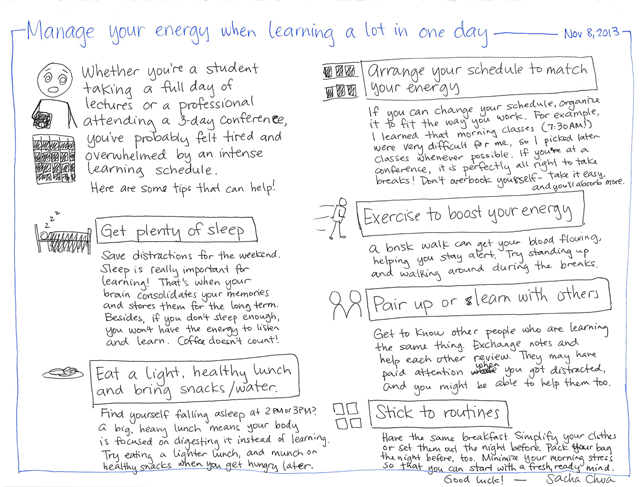 Manage your energy when learning a lot in one day
Nov 8, 2013
Whether you're a student
taking a full day of
lectures or a professional
attending a 3-day conference,
you've probably felt tired and
overwhelmed by an intense
learning schedule.
Here are some tips that can help!
zzz
Get plenty of sleep
Save distractions for the weekend.
Sleep is really important for
learning! That's when your
brain consolidates your memories
and stores them for the long term.
Besides, if you don't sleep enough,
you won't have the energy to listen
and learn. Coffee doesn't count!
Eat a light, healthy lunch
and bring snacks/water.
Find yourself falling asleep at 2PM or 3PM?
A big, heavy lunch means your body
is focused on digesting it instead of learning.
Try eating a lighter lunch, and munch on
healthy snacks when you get hungry later.
Arrange your schedule to match
your energy
If you can change your schedule, organize
it to fit the way you work. For example,
I learned that morning classes (7:30AM!)
were very difficult for me, so I picked later
classes whenever possible. If you're at a
conference, it is perfectly all right to take
breaks! Don't overbook yourself - take it easy,
and you'll absorb more.
Exercise to boost your energy
A brisk walk can get your blood flowing,
helping you stay alert. Try standing up
and walking around during the breaks.
Pair up or learn with others
Get to know other people who are learning
the same thing. Exchange notes and
help each other review. They may have
paid attention when you got distracted,
and you might be able to help them too.
Stick to routines
Have the same breakfast Simplify your clothes
or set them out the night before. Pack your bag
the night before, too. Minimize your morning stress
so that you can start with a fresh, ready mind.
Good luck! — Sacha Chua